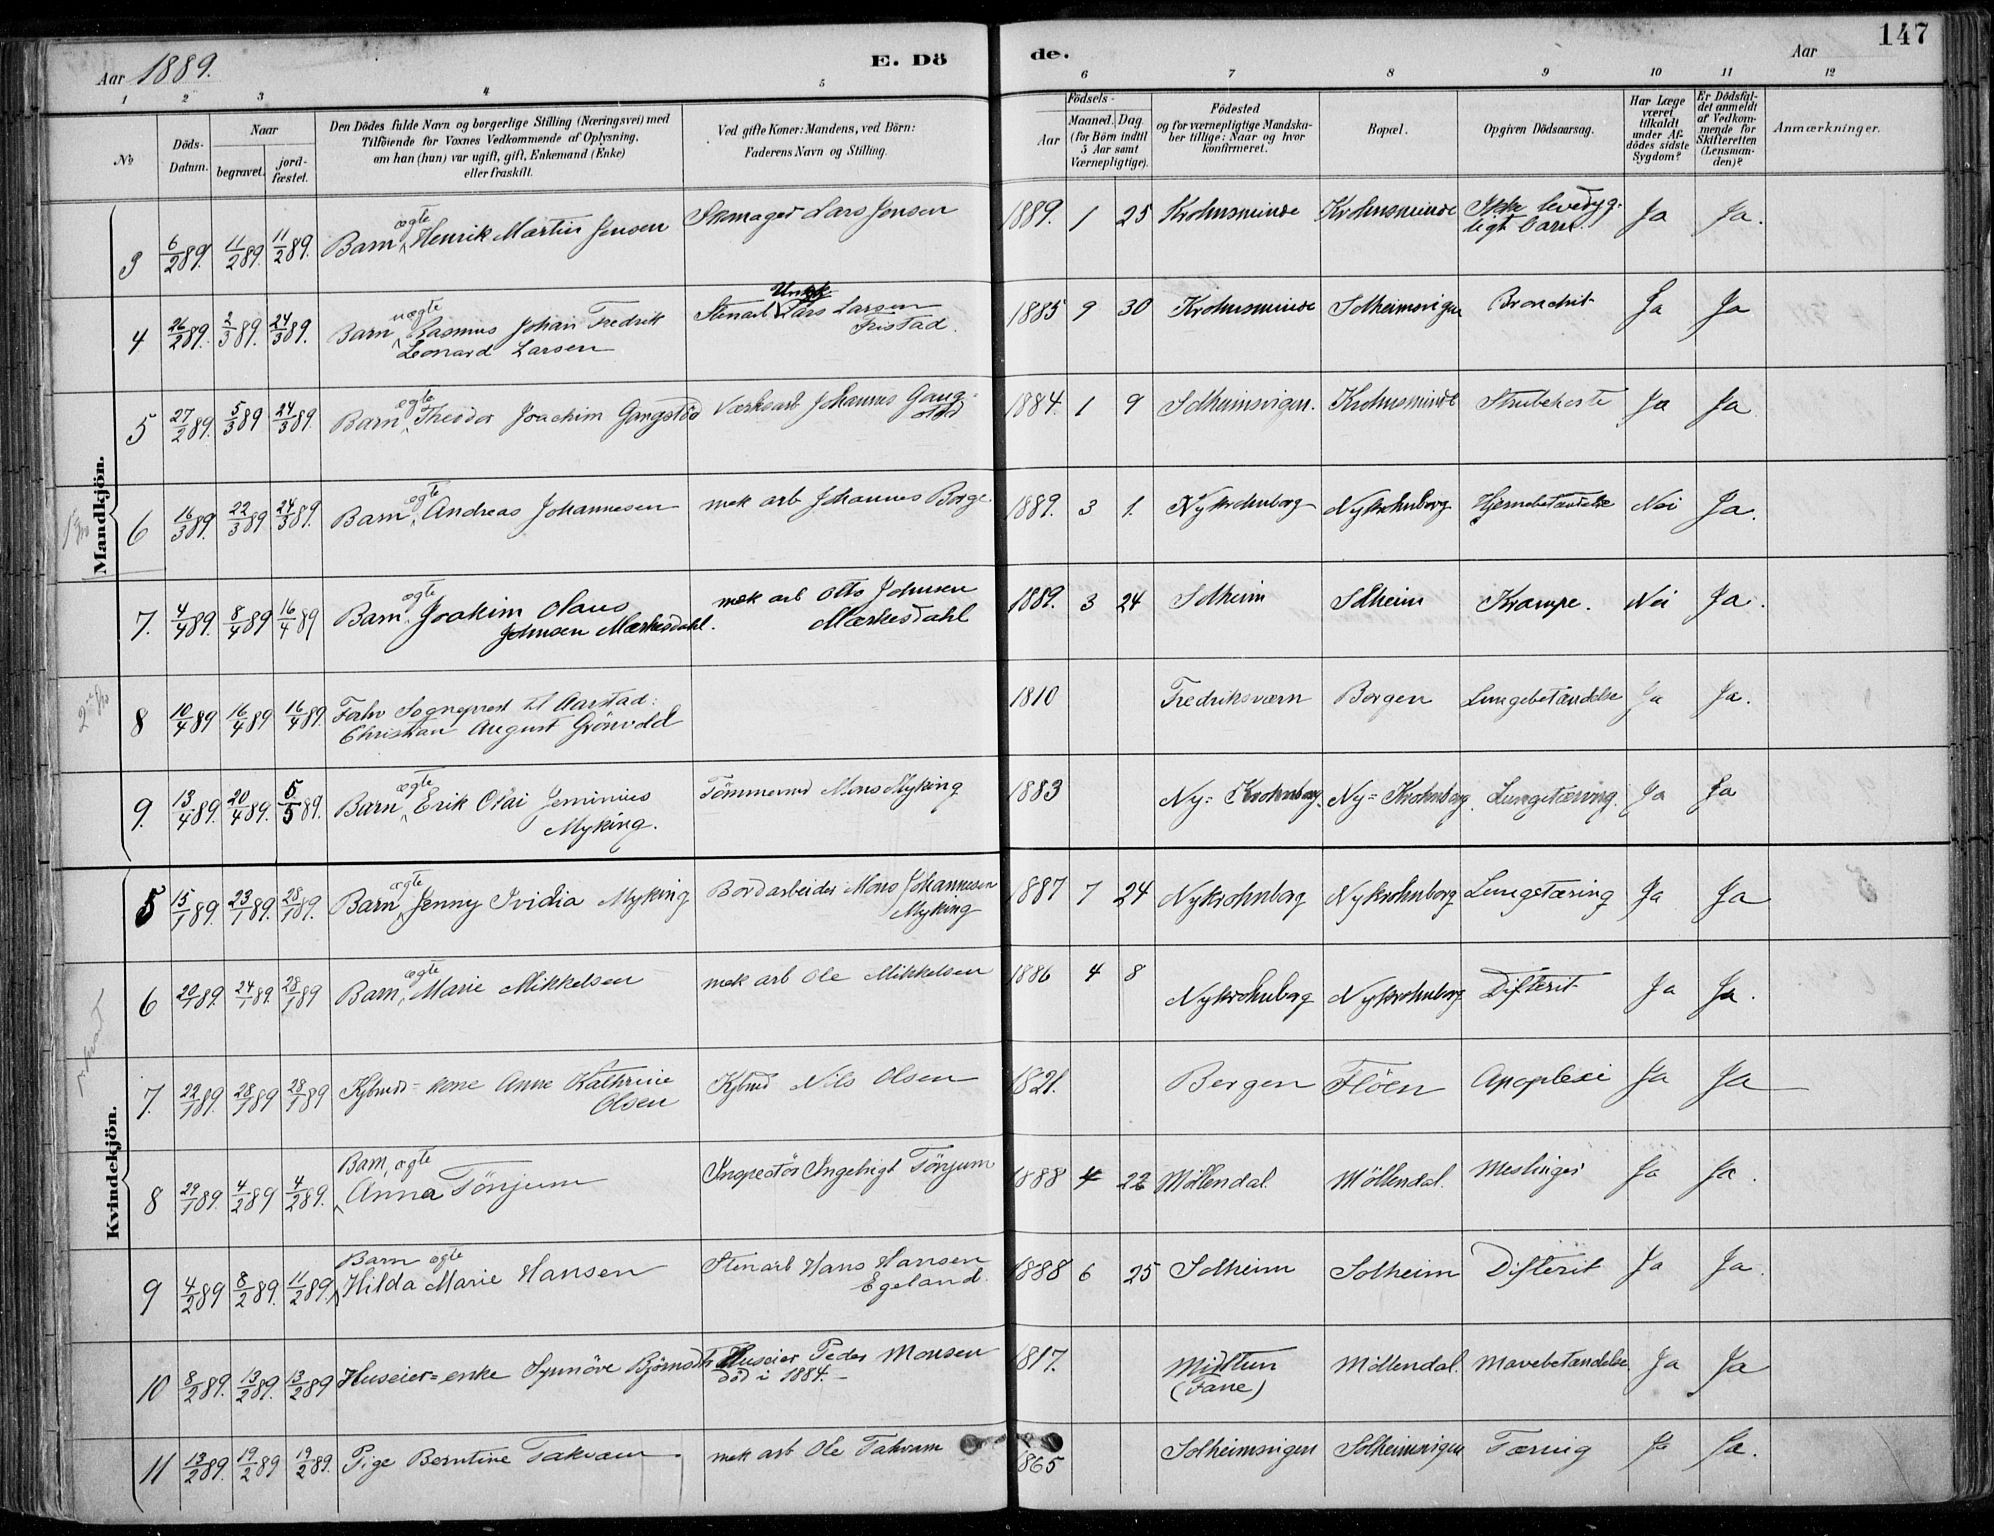 147
Aar 1889.
E. Dö
de.
Aar
1 2 3 4 5 6 7 8 9 10 11 12
No
Döds-Datum.
Naar
begravet.
jord-fæstet.
Den Dödes fulde Navn og borgerlige Stilling (Næringsvei) med
Tilföiende for Voxnes Vedkommende af Oplysning,
om han (hun) var ugift, gift, Enkemand (Enke)
eller fraskilt.
Ved gifte Koner: Mandens, ved Börn:
Faderens Navn og Stilling.
Födsels-
Aar
Maaned. Dag.
(for Börn indtil
5 Aar samt
Værnepligtige).
Födested
og for værnepligtige Mandska-
ber tillige: Naar og hvor
konfirmeret.
Bopæl.
Opgiven Dödsaarsag.
Har Læge
været
tilkaldt
under Af-
dödes sidste
Sygdom?
Er Dödsfal-
det anmeldt
af Vedkom-
mende for
Skifteretten
(Lensman-
den)?
Anmærkninger.
Mandkjön.
3 6/2 89. 11/2 89. 11/2 89. Barn ægte Henrik Martin Jensen Skomager Lars Jensen 1889. 1 25 Krohnsminde Krohnsminde Ikke levedyg-
ligt barn. Ja Ja.
4 26/2 89. 2/3 89. 24/3 89. Barn uægte Rasmus Johan Fredrik
Leonard Larsen Stenarb Ungk Lars Larsen
Tristad. 1885 9 30 Krohnsminde Solheimsvigen Bronchit Ja Ja
5 27/2 89. 5/3 89 24/3 89. Barn ægte Theodor Joachim Gangstöd Værksarb Johannes Gang-
stöd 1884. 1 9 Solheimsvigen. Krohnsminde Strubehoste Ja Ja
6 16/3 89. 22/3 89 24/3 89. Barn ægte Andreas Johannesen mek arb Johannes Borge 1889. 3 1. Nykrohnborg Nykrohnborg Hjernebetændelse Nei Ja.
7. 4/4 89. 8/4 89 16/4 89 Barn ægte Joakim Olaus
Johnsen Markusdahl. mek arb Otto Johnsen
Markusdahl 1889. 3 24 Solheim Solheim Krampe. Nei Ja.
8 10/4 89 16/4 89 16/4 89. Forhv Sogneprest til Aarstad:
Christian August Grönvold 1810 Fredriksværn Bergen Lungebetændelse Ja Ja.
9. 13/4 89. 20/4 89. 5/5 89. Barn ægte Erik Olai Jeminius
Myking. Tömmermd Mons Myking 1883 Ny=Krohnborg. Ny=Krohnborg. Lungetæring. Ja Ja
Kvindekjön.
5 15/1 89. 23/1 89. 28/1 89. Barn ægte Jenny Ividia Myking Bordarbeider Mons Johannesen
Myking 1887 7 24 Nykrohnborg Nykrohnborg Lungetæring Ja Ja
6 20/1 89. 24/1 89. 28/1 89 Barn ægte Marie Mikkelsen mek arb Ole Mikkelsen 1886 4 8 Nykrohnborg Nykrohnborg Difterit Ja Ja.
7. 22/1 89. 28/1 89 28/1 89 Kjbmds=kone Anne Kathrine
Olsen Kjbmd Nils Olsen 1821. Bergen Flöen Apoplexi Ja Ja
8 29/1 89. 4/2 89 4/2 89. Barn, ægte
Anna Tönjum Inspectör Ingebrigt Tönjum 1888 4 22 Möllendal. Möllendal. Meslinger Ja Ja.
9 4/2 89 8/2 89. 11/2 89. Barn ægte
Hilda Marie Hansen Stenarb Hans Hansen
Egeland. 1888 6 25 Solheim Solheim Difterit Ja Ja.
10 8/2 89. 13/2 89. 13/2 89 Huseier=enke Synnöve Björnsdtr Huseier Peder Monsen
död i 1884.— 1817. Midttun
(Fane) Möllendal. Mavebetændelse Ja Ja
11 13/2 89. 19/2 89 19/2 89. Pige Berntine Takvam mek arb Ole Takvam 1865 Solheimsvigen Solheimsvigen Tæring Ja Ja.